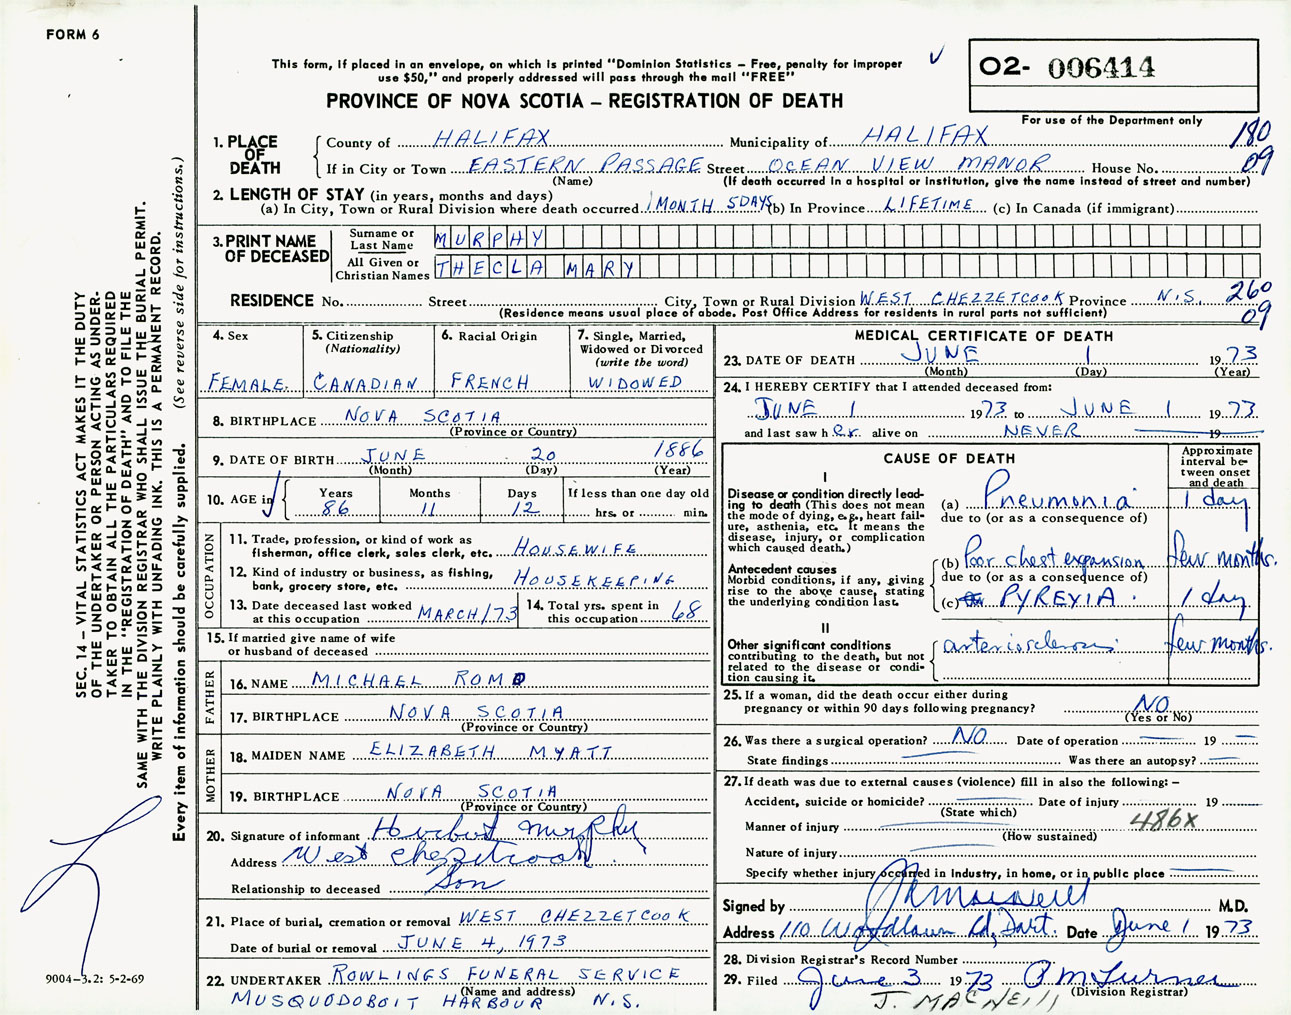 FORM 6
This form, if placed in an envelope, on which is printed "Dominion Statistics – Free, penalty for improper
use $50," and properly addressed will pass through the mail "FREE"
O2- 006414
PROVINCE OF NOVA SCOTIA – REGISTRATION OF DEATH
For use of the Department only
1. PLACE OF DEATH County of HALIFAX Municipality of HALIFAX 180
If in City or Town EASTERN PASSAGE Street OCEAN VIEW MANOR House No. 09
(Name) (If death occurred in a hospital or institution, give the name instead of street and number)
2. LENGTH OF STAY (in years, months and days)
(a) In City, Town or Rural Division where death occurred 1 MONTH 5 DAYS (b) In Province LIFETIME (c) In Canada (if immigrant)
3. PRINT NAME OF DECEASED
Surname or Last Name MURPHY
All Given or Christian Names THECLA MARY
RESIDENCE No. Street City, Town or Rural Division WEST CHEZZETCOOK Province N.S. 260
(Residence means usual place of abode. Post Office Address for residents in rural parts not sufficient) 09
4. Sex
FEMALE
5. Citizenship
(Nationality)
CANADIAN
6. Racial Origin
FRENCH
7. Single, Married,
Widowed or Divorced
(write the word)
WIDOWED
8. BIRTHPLACE NOVA SCOTIA
(Province or Country)
9. DATE OF BIRTH JUNE 20 1886
(Month) (Day) (Year)
10. AGE in Years 86 Months 11 Days 12 If less than one day old
hrs. or min.
OCCUPATION
11. Trade, profession, or kind of work as
fisherman, office clerk, sales clerk, etc. HOUSEWIFE
12. Kind of industry or business, as fishing,
bank, grocery store, etc. HOUSEKEEPING
13. Date deceased last worked
at this occupation MARCH/73
14. Total yrs. spent in
this occupation 68
15. If married give name of wife
or husband of deceased
FATHER
16. NAME MICHAEL ROMO
17. BIRTHPLACE NOVA SCOTIA
(Province or Country)
MOTHER
18. MAIDEN NAME ELIZABETH MYATT
19. BIRTHPLACE NOVA SCOTIA
(Province or Country)
20. Signature of informant Herbert Murphy
Address West Chezzetcook
Relationship to deceased Son
21. Place of burial, cremation or removal WEST CHEZZETCOOK
Date of burial or removal JUNE 4, 1973
22. UNDERTAKER ROWLINGS FUNERAL SERVICE
(Name and address)
MUSQUODOBOIT HARBOUR N.S.
MEDICAL CERTIFICATE OF DEATH
23. DATE OF DEATH JUNE 1 1973
(Month) (Day) (Year)
24. I HEREBY CERTIFY that I attended deceased from:
JUNE 1 1973 to JUNE 1 1973
and last saw her alive on NEVER 19
CAUSE OF DEATH
Approximate
interval be-
tween onset
and death
I
Disease or condition directly lead-
ing to death (This does not mean
the mode of dying, e.g., heart fail-
ure, asthenia, etc. It means the
disease, injury, or complication
which caused death.)
(a) Pneumonia 1 day
due to (or as a consequence of)
Antecedent causes
Morbid conditions, if any, giving
rise to the above cause, stating
the underlying condition last.
(b) Poor chest expansion few months.
due to (or as a consequence of)
(c) PYREXIA. 1 day
II
Other significant conditions
contributing to the death, but not
related to the disease or condi-
tion causing it.
arteriosclerosis few months.
25. If a woman, did the death occur either during
pregnancy or within 90 days following pregnancy? NO
(Yes or No)
26. Was there a surgical operation? NO Date of operation 19
State findings Was there an autopsy?
27. If death was due to external causes (violence) fill in also the following: –
Accident, suicide or homicide? Date of injury 19
(State which)
Manner of injury 486X
(How sustained)
Nature of injury
Specify whether injury occurred in industry, in home, or in public place
Signed by M.D.
Address 110 Woodlawn Rd, Dart. Date June 1 1973
28. Division Registrar's Record Number
29. Filed June 3 1973 P M Turner
(Division Registrar)
J. MACNEILL
SEC. 14 – VITAL STATISTICS ACT MAKES IT THE DUTY
OF THE UNDERTAKER OR PERSON ACTING AS UNDER-
TAKER TO OBTAIN ALL THE PARTICULARS REQUIRED
IN THE "REGISTRATION OF DEATH" AND TO FILE THE
SAME WITH THE DIVISION REGISTRAR WHO SHALL ISSUE THE BURIAL PERMIT.
WRITE PLAINLY WITH UNFADING INK. THIS IS A PERMANENT RECORD.
Every item of information should be carefully supplied. (See reverse side for instructions.)
9004–3.2: 5-2-69